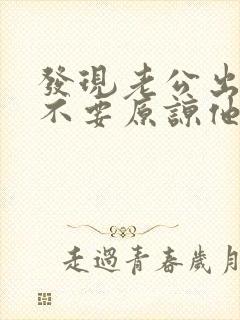 發現老公出
不要原諒他
走過青春歲月